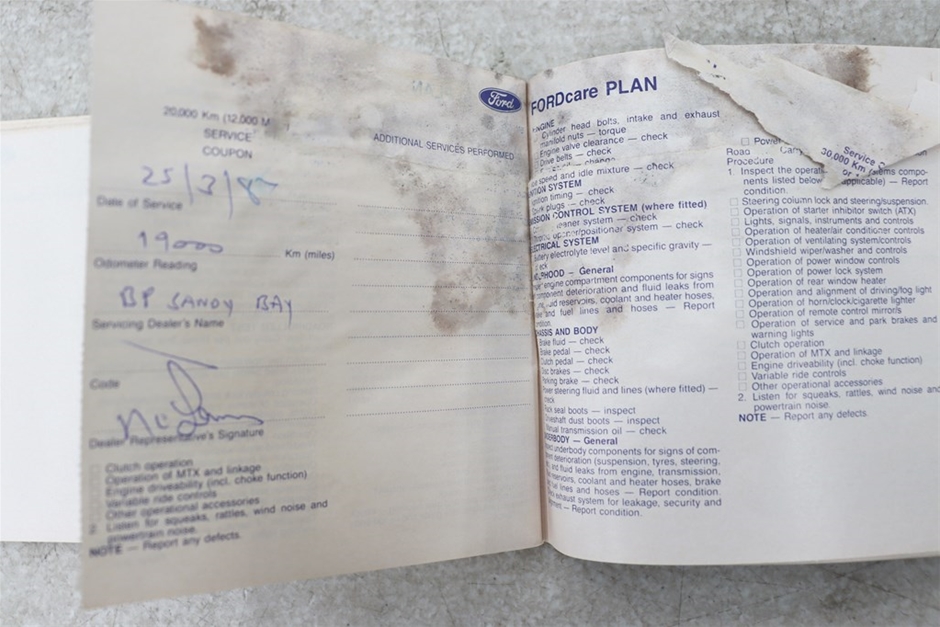 20,000 Km (12,000 M
SERVICE
COUPON
Ford
ADDITIONAL SERVICES PERFORMED
25/3/8
Date of Service
19000
Km (miles)
Odometer Reading
BP SANDY BAY
Servicing Dealer's Name
Code
Dealer Representative's Signature
Clutch operation
Operation of MTX and linkage
Engine driveability (incl. choke function)
Variable ride controls
Other operational accessories
2. Listen for squeaks, rattles, wind noise and
powertrain noise.
NOTE — Report any defects.
FORDcare PLAN
ENGINE
Cylinder head bolts, intake and exhaust
manifold nuts — torque
Engine valve clearance — check
Drive belts — check
change
speed and idle mixture — check
NITION SYSTEM
nition timing — check
plugs — check
SSION CONTROL SYSTEM (where fitted)
cleaner system — check
opener/positioner system — check
ECTRICAL SYSTEM
attery electrolyte level and specific gravity —
eck
ERHOOD — General
engine compartment components for signs
omponent deterioration and fluid leaks from
fluid reservoirs, coolant and heater hoses,
and fuel lines and hoses — Report
ndition.
HASSIS AND BODY
Brake fluid — check
Brake pedal — check
Clutch pedal — check
Disc brakes — check
Parking brake — check
Power steering fluid and lines (where fitted) —
heck
seal boots — inspect
veshaft dust boots — inspect
anual transmission oil — check
DERBODY — General
underbody components for signs of com-
deterioration (suspension, tyres, steering,
and fluid leaks from engine, transmission,
reservoirs, coolant and heater hoses, brake
fuel lines and hoses — Report condition.
exhaust system for leakage, security and
— Report condition.
Service
30,000 Km
or
Power
Road
Procedure
1. Inspect the operat
compo-
nents listed below
applicable) — Report
condition.
Steering column lock and steering/suspension.
Operation of starter inhibitor switch (ATX)
Lights, signals, instruments and controls
Operation of heater/air conditioner controls
Operation of ventilating system/controls
Windshield wiper/washer and controls
Operation of power window controls
Operation of power lock system
Operation of rear window heater
Operation and alignment of driving/fog light
Operation of horn/clock/cigarette lighter
Operation of remote control mirrors
Operation of service and park brakes and
warning lights
Clutch operation
Operation of MTX and linkage
Engine driveability (incl. choke function)
Variable ride controls
Other operational accessories
2. Listen for squeaks, rattles, wind noise and
powertrain noise.
NOTE — Report any defects.